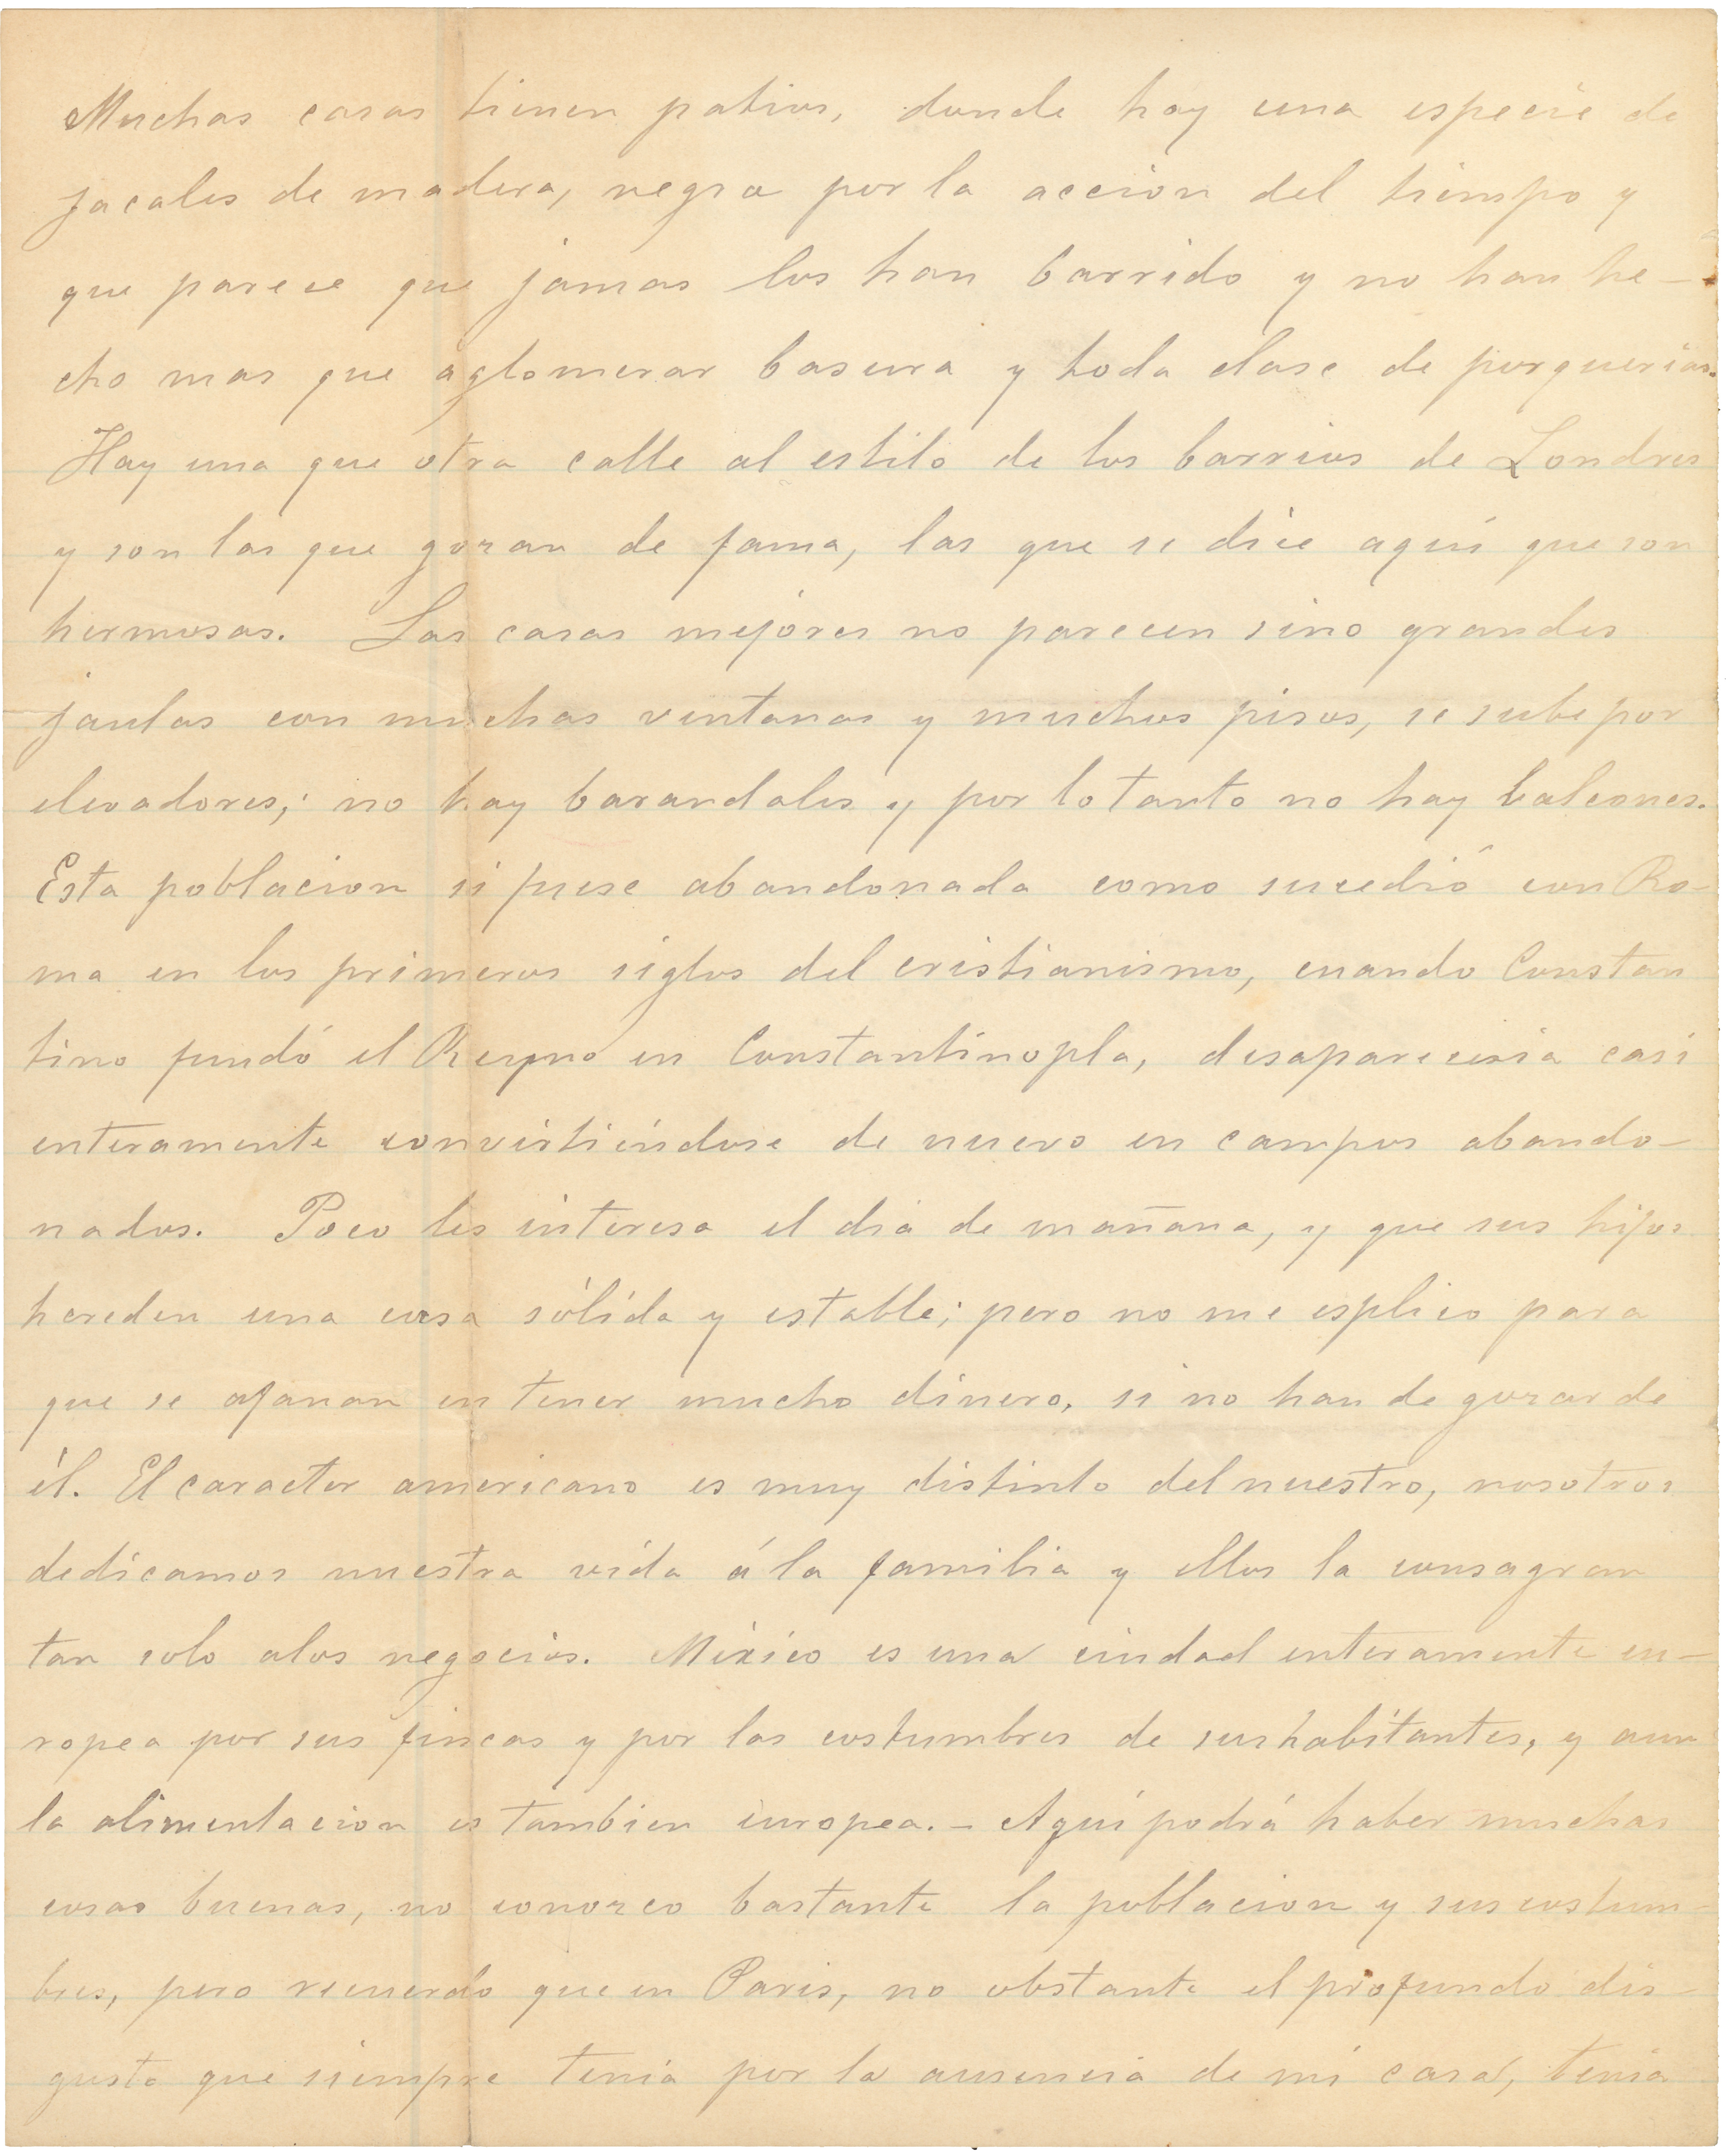 Muchas casas tienen patios, donde hay una especie de
jacales de madera, negra por la accion del tiempo y
que parece que jamas los han barrido y no han he-
cho mas que aglomerar basura y toda clase de porquerias.
Hay una que otra calle al estilo de los barrios de Londres
y son las que gozan de fama, las que se dice aquí que son
hermosas. Las casas mejores no parecen sino grandes
jaulas con muchas ventanas y muchos pisos, se sube por
elevadores; no hay barandales y por lo tanto no hay balcones.
Esta poblacion si fuese abandonada como sucedió con Ro-
ma en los primeros siglos del cristianismo, cuando Constan
tino fundó el Reyno en Constantinopla, desapareceria casi
enteramente convirtiéndose de nuevo en campos abando-
nados. Poco les interesa el dia de mañana, y que sus hijos
hereden una cosa sólida y estable; pero no me esplico para
que se afanan en tener mucho dinero, si no han de gozar de
él. El caracter americano es muy distinto del nuestro, nosotros
dedicamos nuestra vida á la familia y ellos la consagran
tan solo alos negocios. México es una ciudad enteramente eu-
ropea por sus fincas y por las costumbres de sus habitantes, y aun
la alimentacion es tambien europea. - Aquí podrá haber muchas
cosas buenas, no conozco bastante la poblacion y sus costum-
bres, pero recuerdo que en Paris, no obstante el profundo dis-
gusto que siempre tenia por la ausencia de mi casa, tenia